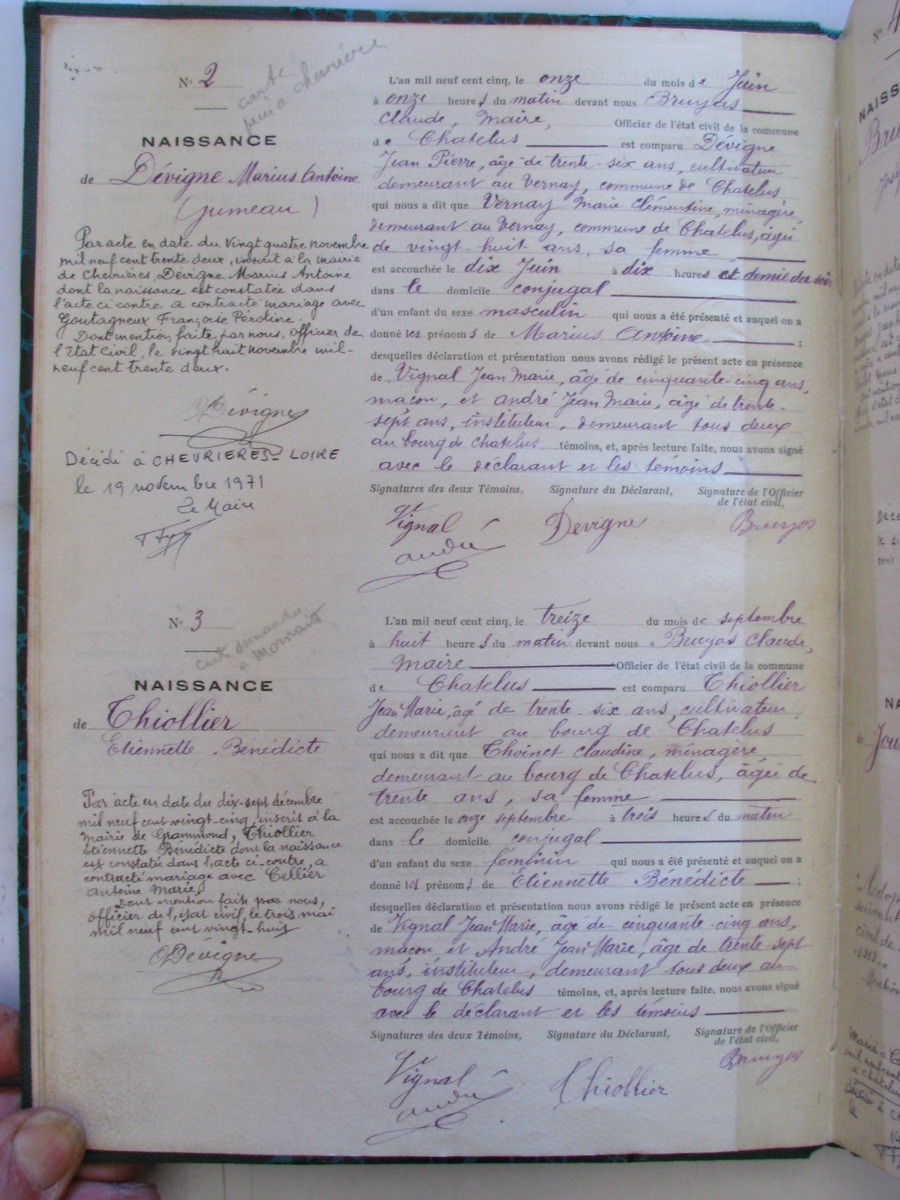 No 2
carte
à chevrières
NAISSANCE
de Dévigne Marius Antoine
(jumeau)
Par acte en date du vingt quatre novembre
mil neuf cent trente deux, inscrit à la mairie
de Chevrières, Dévigne Marius Antoine
dont la naissance est constatée dans
l'acte ci contre a contracté mariage avec
Goutagneux Françoise Péroline.
Dont mention faite par nous, officier de
l'Etat Civil, le vingt huit novembre mil-
neuf cent trente deux.
Dévigne
Décédé à CHEVRIERES-LOIRE
le 19 novembre 1971
Le Maire
L'an mil neuf cent cinq, le onze du mois de Juin
à onze heures du matin devant nous Bruyas
Claude, Maire, Officier de l'état civil de la commune
de Chatelus est comparu Dévigne
Jean Pierre, âgé de trente-six ans, cultivateur
demeurant au Vernay, commune de Chatelus
qui nous a dit que Vernay Marie Clémentine, ménagère,
demeurant au Vernay, commune de Chatelus, âgée
de vingt-huit ans, sa femme
est accouchée le dix Juin à dix heures et demie du soir
dans le domicile conjugal
d'un enfant du sexe masculin qui nous a été présenté et auquel on a
donné les prénoms de Marius Antoine ;
desquelles déclaration et présentation nous avons rédigé le présent acte en présence
de Vignal Jean Marie, âgé de cinquante-cinq ans,
maçon, et André Jean Marie, âgé de trente-
sept ans, instituteur, demeurant tous deux
au bourg de Chatelus témoins, et, après lecture faite, nous avons signé
avec le déclarant et les témoins
Signatures des deux Témoins, Signature du Déclarant, Signature de l'Officier
de l'état civil,
Vignal Devigne Bruyas
André
No 3
carte demandée
à Mornant
NAISSANCE
de Thiollier
Etiennette Bénédicte
Par acte en date du dix-sept décembre
mil neuf cent vingt-cinq, inscrit à la
mairie de Grammond, Thiollier
Etiennette Bénédicte dont la naissance
est constatée dans l'acte ci-contre, a
contracté mariage avec Cellier
Antoine Marie
Dont mention faite par nous,
officier de l'état civil, le trois mai
mil neuf cent vingt-huit
Dévigne
L'an mil neuf cent cinq, le treize du mois de septembre
à huit heures du matin devant nous Bruyas Claude,
Maire Officier de l'état civil de la commune
de Chatelus est comparu Thiollier
Jean Marie, âgé de trente-six ans, cultivateur,
demeurant au bourg de Chatelus
qui nous a dit que Thoinet Claudine, ménagère
demeurant au bourg de Chatelus, âgée de
trente ans, sa femme
est accouchée le onze septembre à trois heures du matin
dans le domicile conjugal
d'un enfant du sexe féminin qui nous a été présenté et auquel on a
donné les prénoms de Etiennette Bénédicte ;
desquelles déclaration et présentation nous avons rédigé le présent acte en présence
de Vignal Jean Marie, âgé de cinquante-cinq ans,
maçon et André Jean Marie, âgé de trente-sept
ans, instituteur, demeurant tous deux au
bourg de Chatelus témoins, et, après lecture faite, nous avons signé
avec le déclarant et les témoins
Signatures des deux Témoins, Signature du Déclarant, Signature de l'Officier
de l'état civil,
Vignal Thiollier Bruyas
André